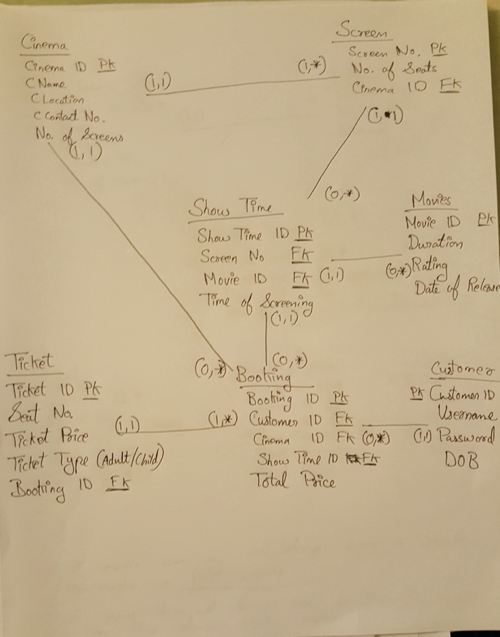 Cinema
Cinema ID PK
C Name
C Location
C Contact No.
No. of Screens
(1,1)
(1,1)
(1,*)
Screen
Screen No. PK
No. of Seats
Cinema ID FK
(1,1)
(0,*)
Show Time
Show Time ID PK
Screen No FK
Movie ID FK (1,1)
Time of Screening
(1,1)
Movies
Movie ID PK
Duration
(0,*) Rating
Date of Release
(0,*)
(0,*)
Ticket
Ticket ID PK
Seat No.
Ticket Price (1,1)
Ticket Type (Adult/Child)
Booking ID FK
(1,*)
Booking
Booking ID PK
Customer ID FK
Cinema ID FK (0,*)
Show Time ID FK
Total Price
Customer
PK Customer ID
Username
(1,1) Password
DOB